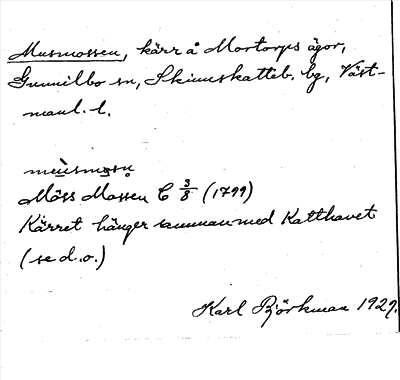 Musmossen, kärr å Mortorps ägor,
Gunnilbo sn, Skinnskatteb. bg, Väst-
manl. l.
Möss Mossen C 3/8 (1799)
Kärret hänger samman med Katthavet
(se d.o.)
Karl Björkman 1929.